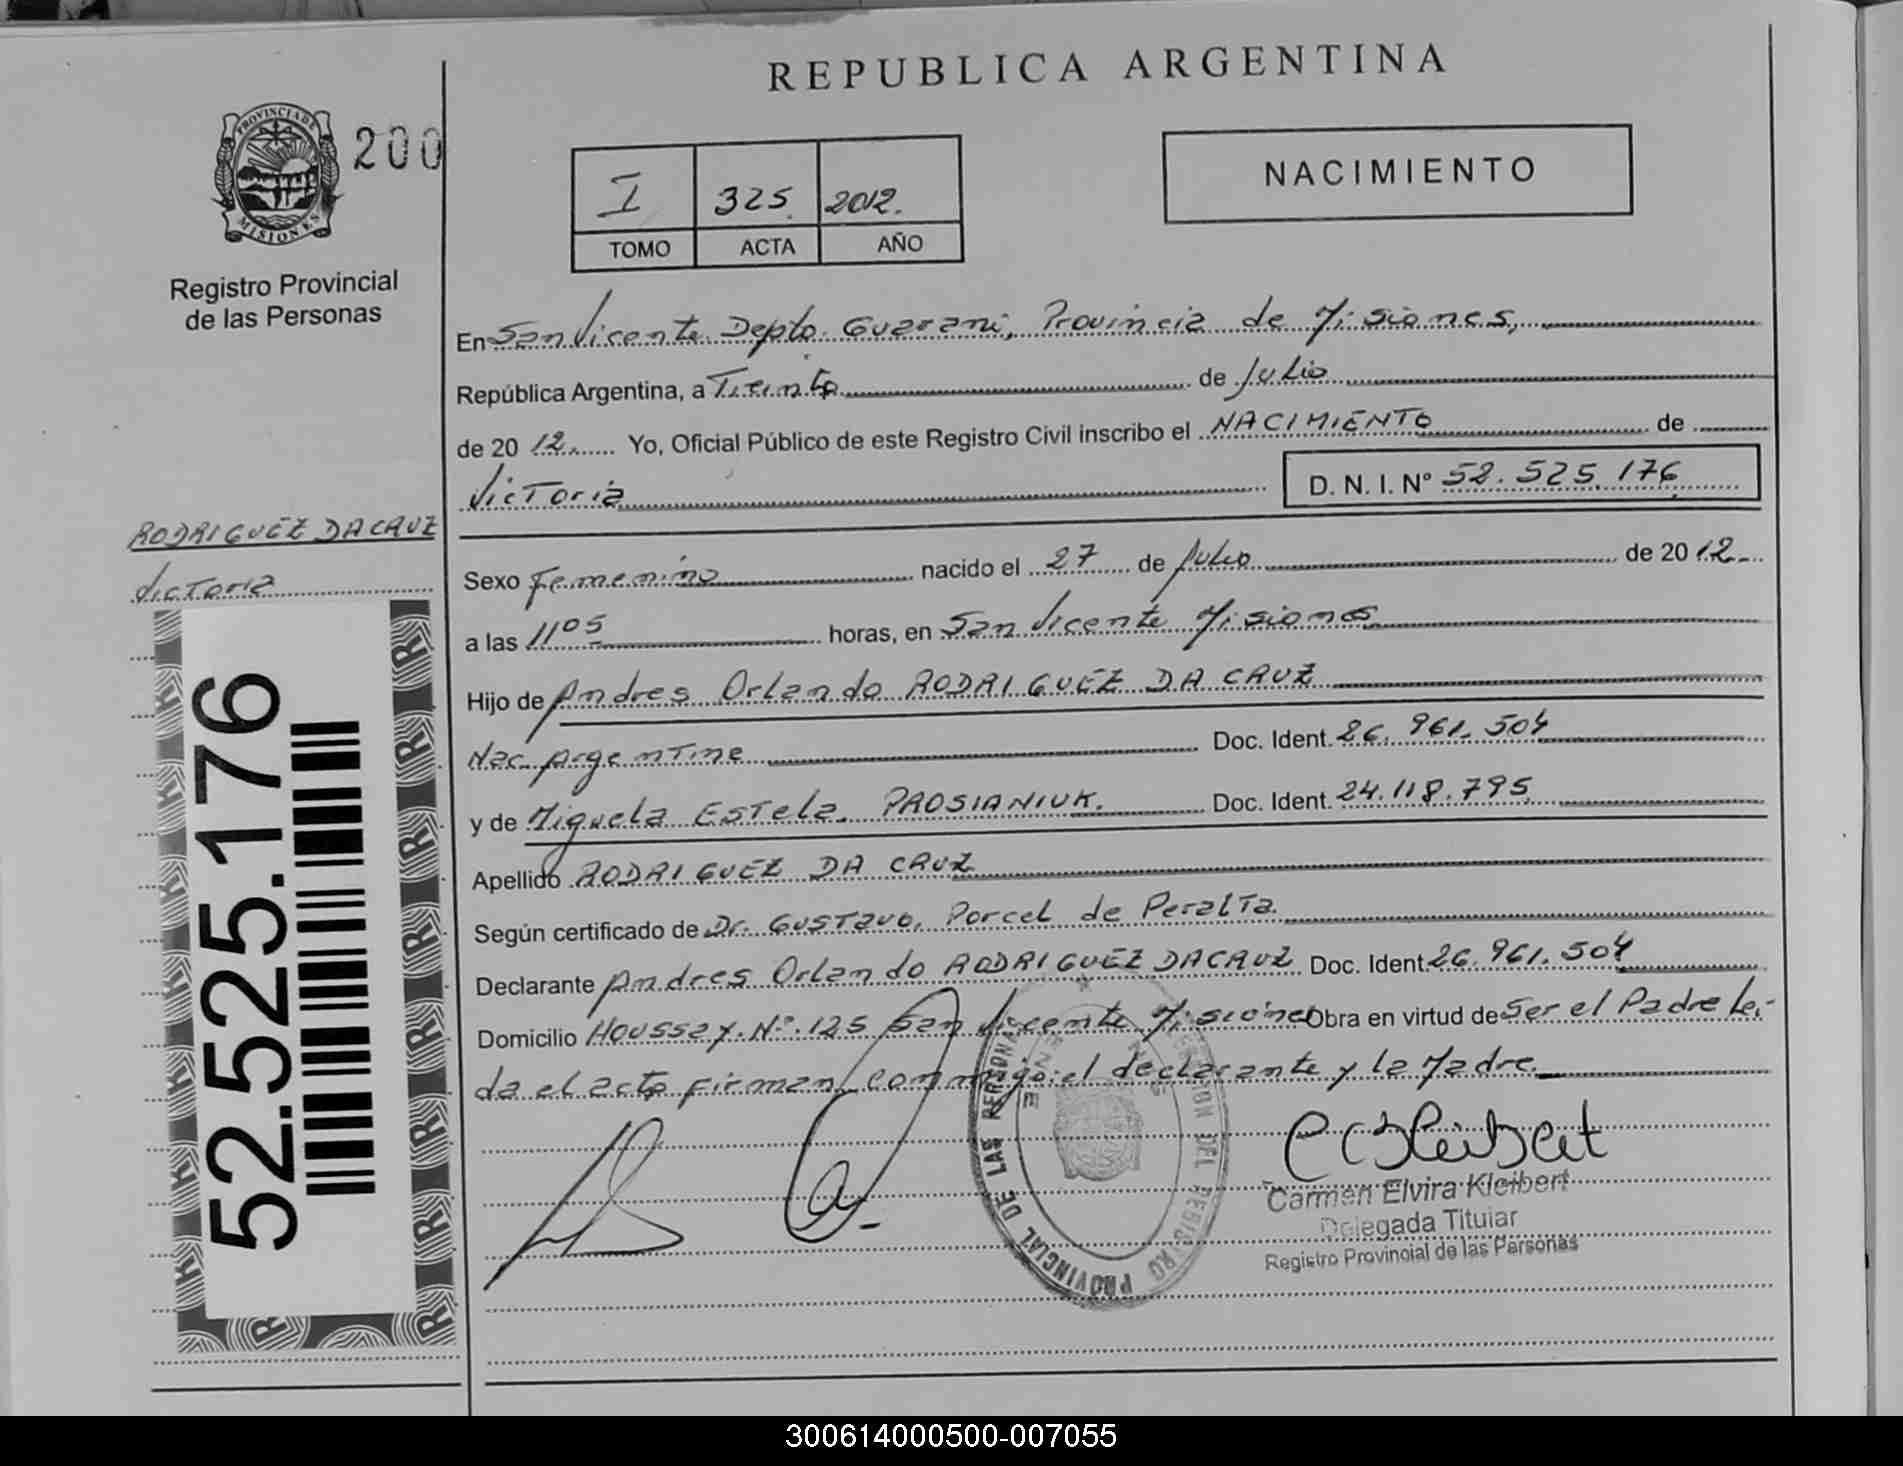 REPUBLICA ARGENTINA
PROVINCIA DE
MISIONES
200
Registro Provincial
de las Personas
I 325 2012.
TOMO ACTA AÑO
NACIMIENTO
En San Vicente Depto. Guarani, Provincia de Misiones,
República Argentina, a Treinta de Julio
de 2012. Yo, Oficial Público de este Registro Civil inscribo el NACIMIENTO de
Victoria D. N. I. Nº 52.525.176
RODRIGUEZ DA CRUZ
Victoria
52.525.176
Sexo Femenino nacido el 27 de Julio de 2012
a las 11 05 horas, en San Vicente Misiones
Hijo de Andres Orlando RODRIGUEZ DA CRUZ
Nac. Argentine Doc. Ident. 26.961.504
y de Miguela Estela PROSIANIUK. Doc. Ident. 24.118.795
Apellido RODRIGUEZ DA CRUZ
Según certificado de Dr. Gustavo, Porcel de Peralta.
Declarante Andres Orlando RODRIGUEZ DACRUZ Doc. Ident. 26.961.504
Domicilio Houssay Nº 125 San Vicente Misiones Obra en virtud de Ser el Padre Le-
da el acta firman conmigo el declarante y la Madre.
Carmen Elvira Kleibert
Delegada Titular
Registro Provincial de las Personas
REGISTRO PROVINCIAL DE LAS PERSONAS
300614000500-007055